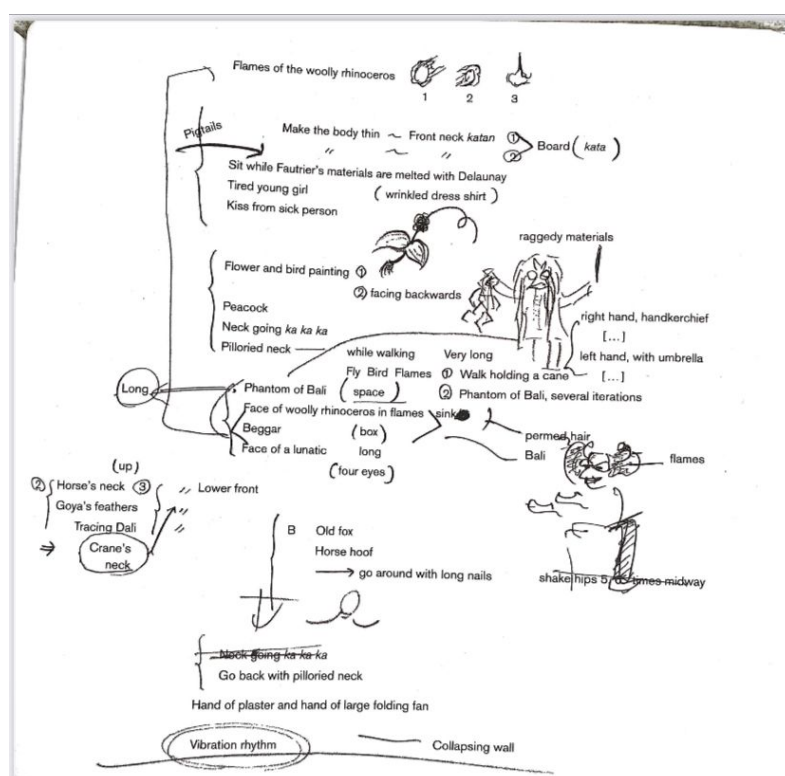 Flames of the woolly rhinoceros
1 2 3
Pigtails
Make the body thin ~ Front neck katan ①
〃 ~ 〃 ②
Board (kata)
Sit while Fautrier's materials are melted with Delaunay
Tired young girl (wrinkled dress shirt)
Kiss from sick person
raggedy materials
Flower and bird painting ①
② facing backwards
Peacock
Neck going ka ka ka
Pilloried neck
right hand, handkerchief
[...]
left hand, with umbrella
[...]
while walking Very long
Fly Bird Flames ① Walk holding a cane
Long
Phantom of Bali (space) ② Phantom of Bali, several iterations
Face of woolly rhinoceros in flames sink
Beggar (box)
Face of a lunatic long
(four eyes)
permed hair
Bali
flames
(up)
② Horse's neck ③ 〃 Lower front
Goya's feathers 〃
Tracing Dali 〃
⇒ Crane's neck
B Old fox
Horse hoof
→ go around with long nails
shake hips 5, 6 times midway
Neck going ka ka ka
Go back with pilloried neck
Hand of plaster and hand of large folding fan
Vibration rhythm
Collapsing wall